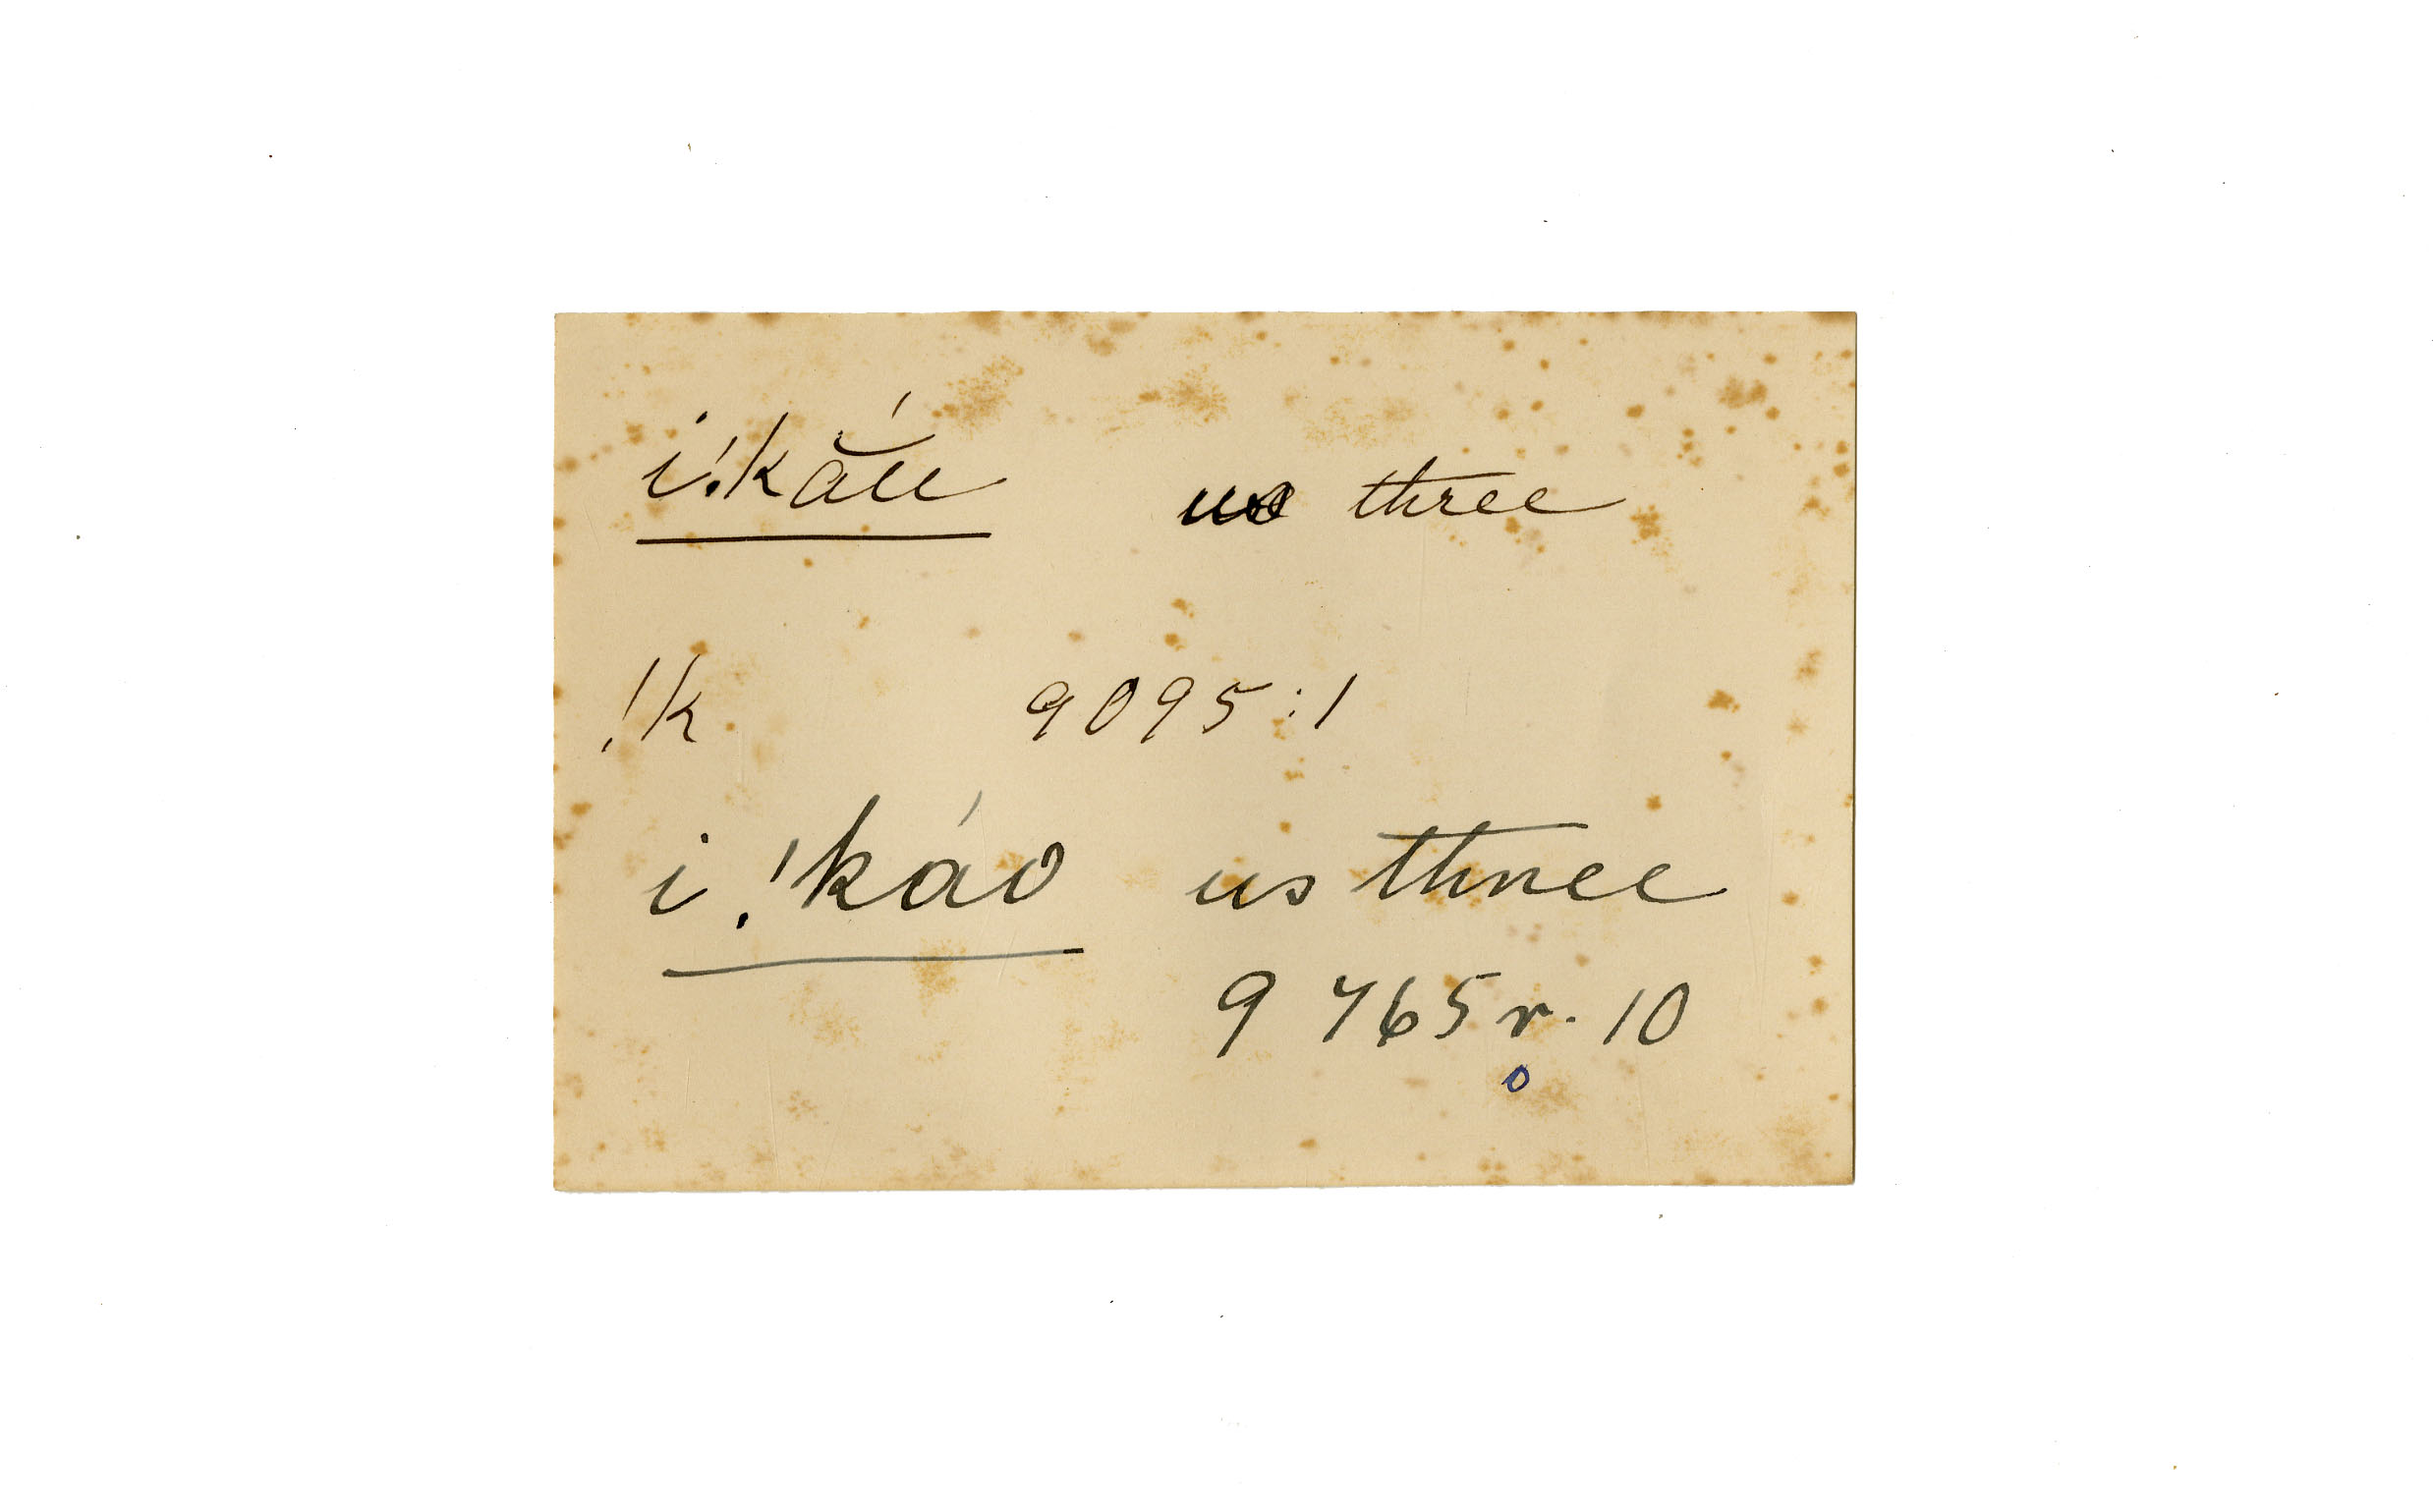 i!kắu us three
!k 9095:1
i !káo us three
9765 r. 10
o